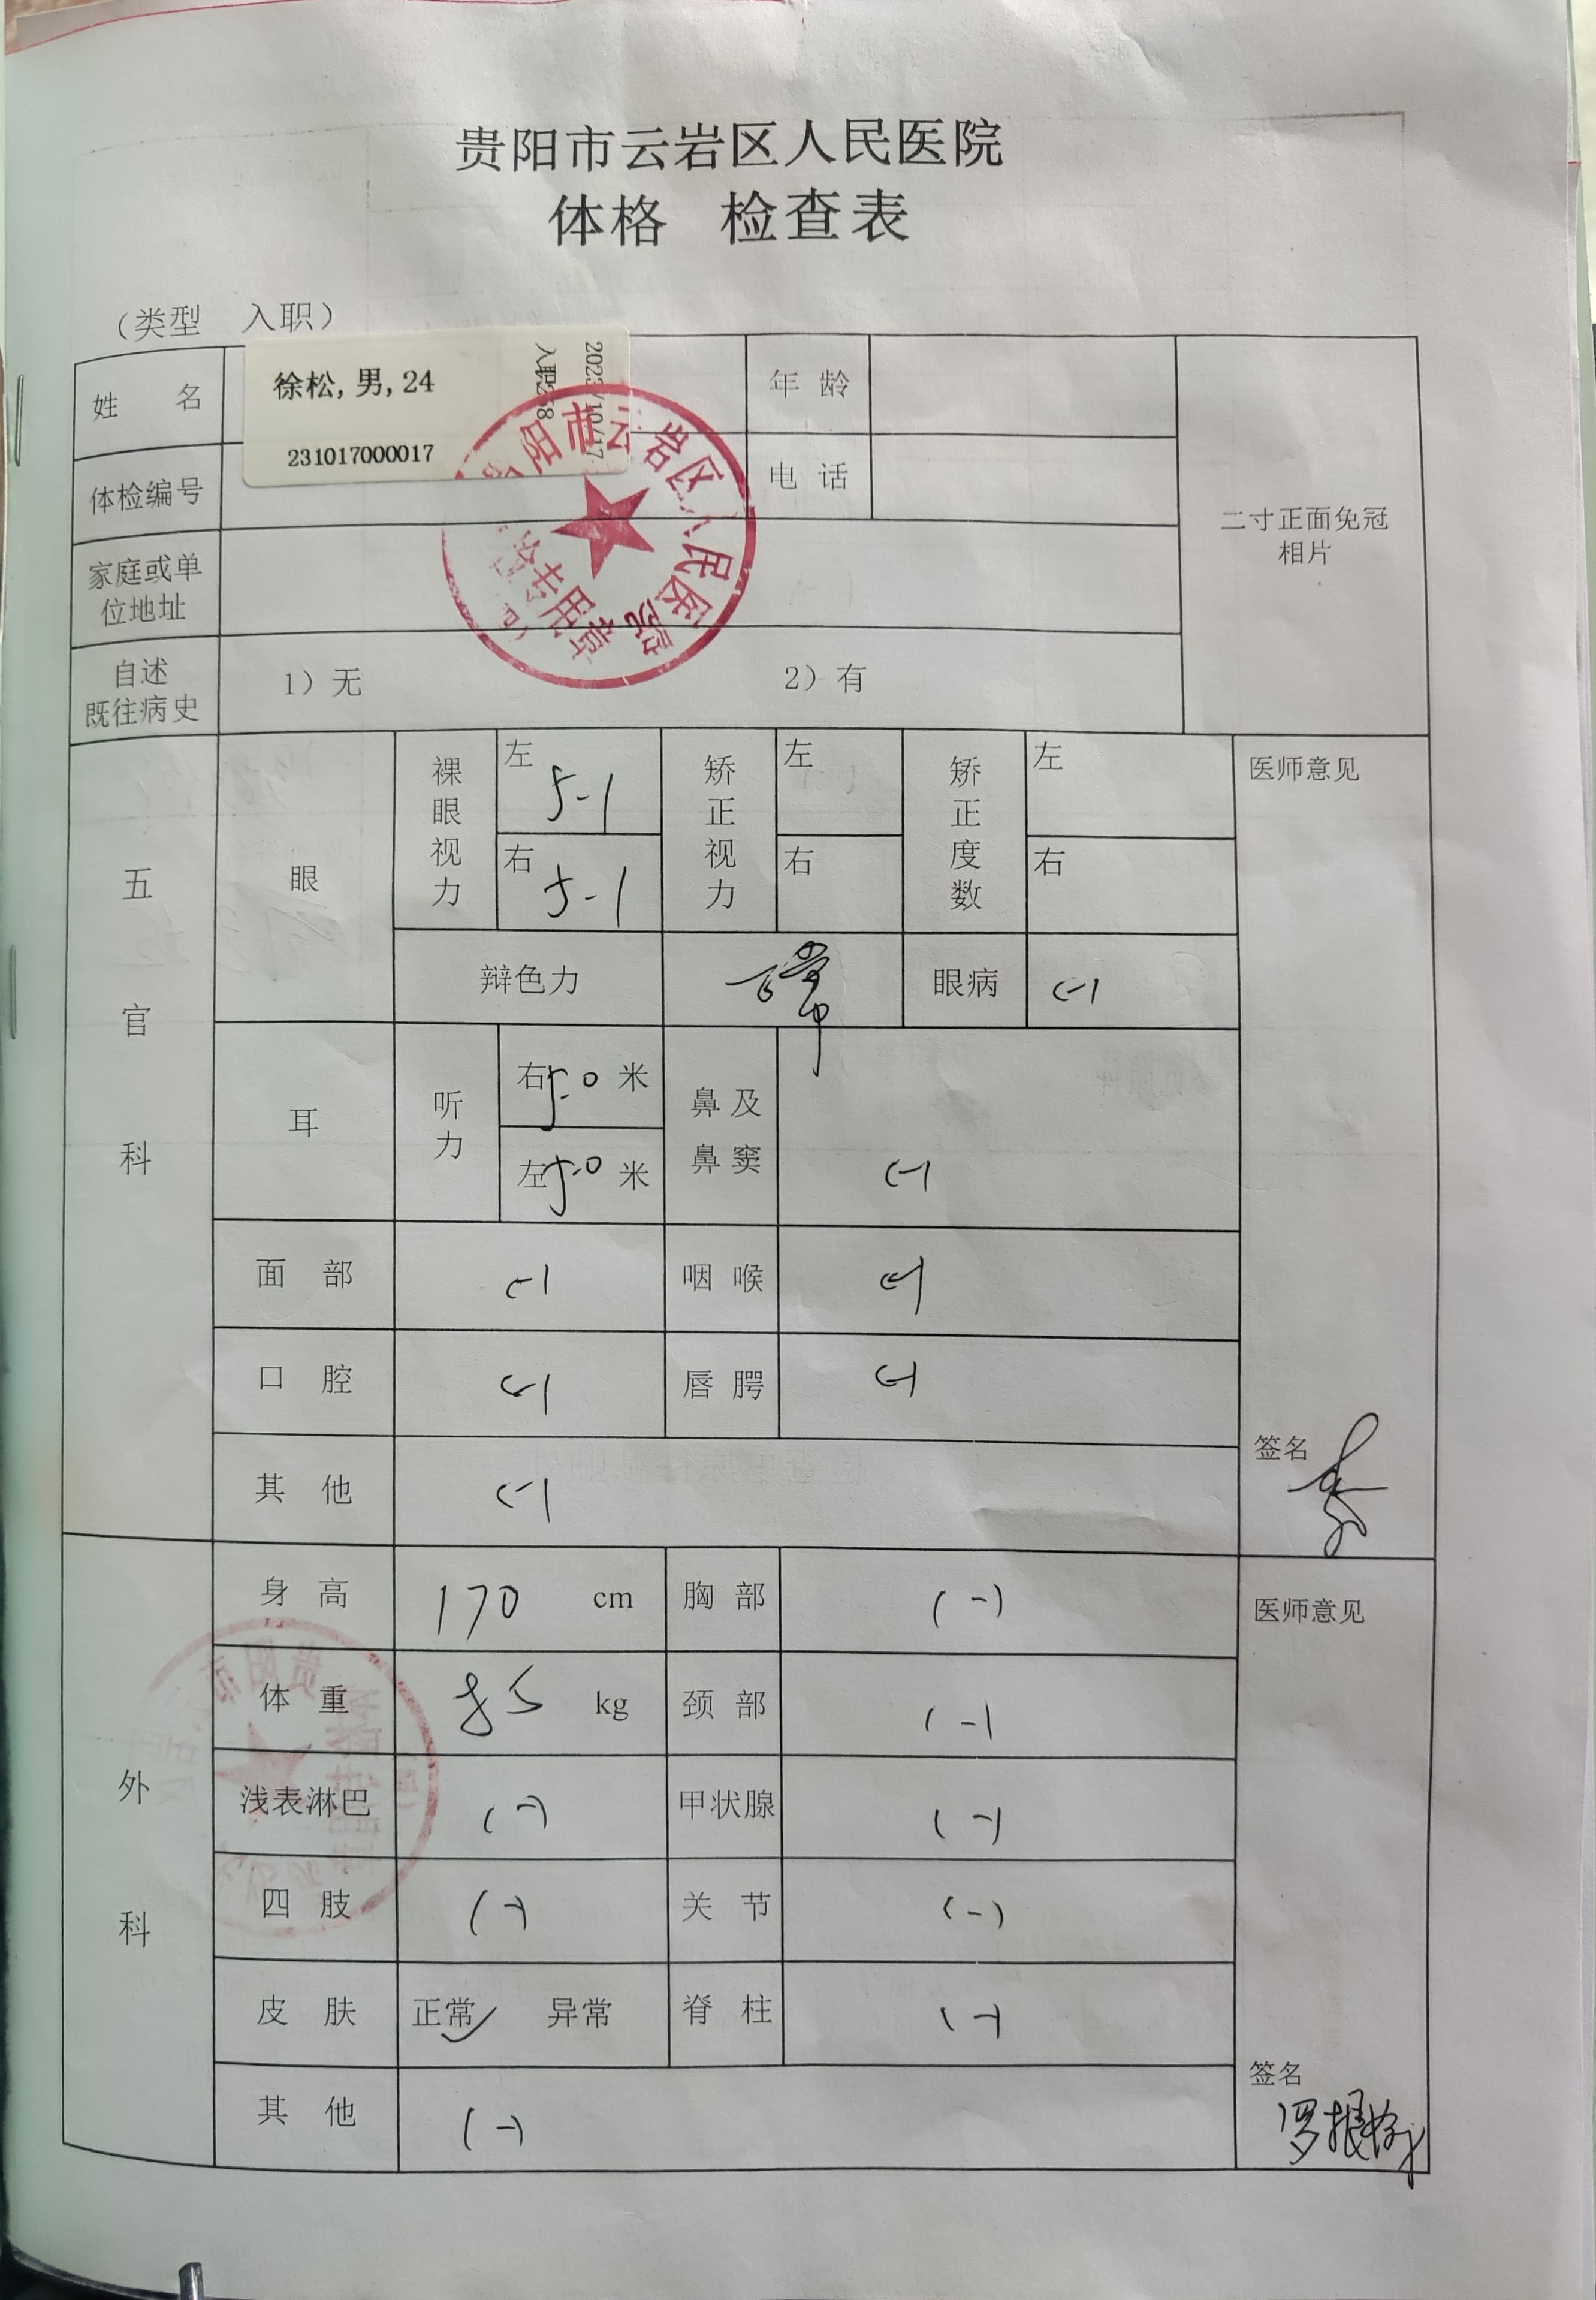 贵阳市云岩区人民医院
体格 检查表
（类型 入职）
姓 名
徐松,男,24
231017000017
2023/10/17
年 龄
体检编号
电 话
二寸正面免冠
相片
家庭或单
位地址
自述
既往病史
1）无 2）有
五官科
眼
裸眼视力
左 5-1
右 5-1
矫正视力
左
右
矫正度数
左
右
医师意见
辩色力
正常
眼病
(-)
耳
听力
右 5.0 米
左 5.0 米
鼻及
鼻窦
(-)
面 部 (-) 咽 喉 (-)
口 腔 (-) 唇 腭 (-)
其 他 (-)
签名
外科
身 高 170 cm 胸 部 (-)
医师意见
体 重 85 kg 颈 部 (-)
浅表淋巴 (-) 甲状腺 (-)
四 肢 (-) 关 节 (-)
皮 肤 正常✓ 异常 脊 柱 (-)
其 他 (-)
签名